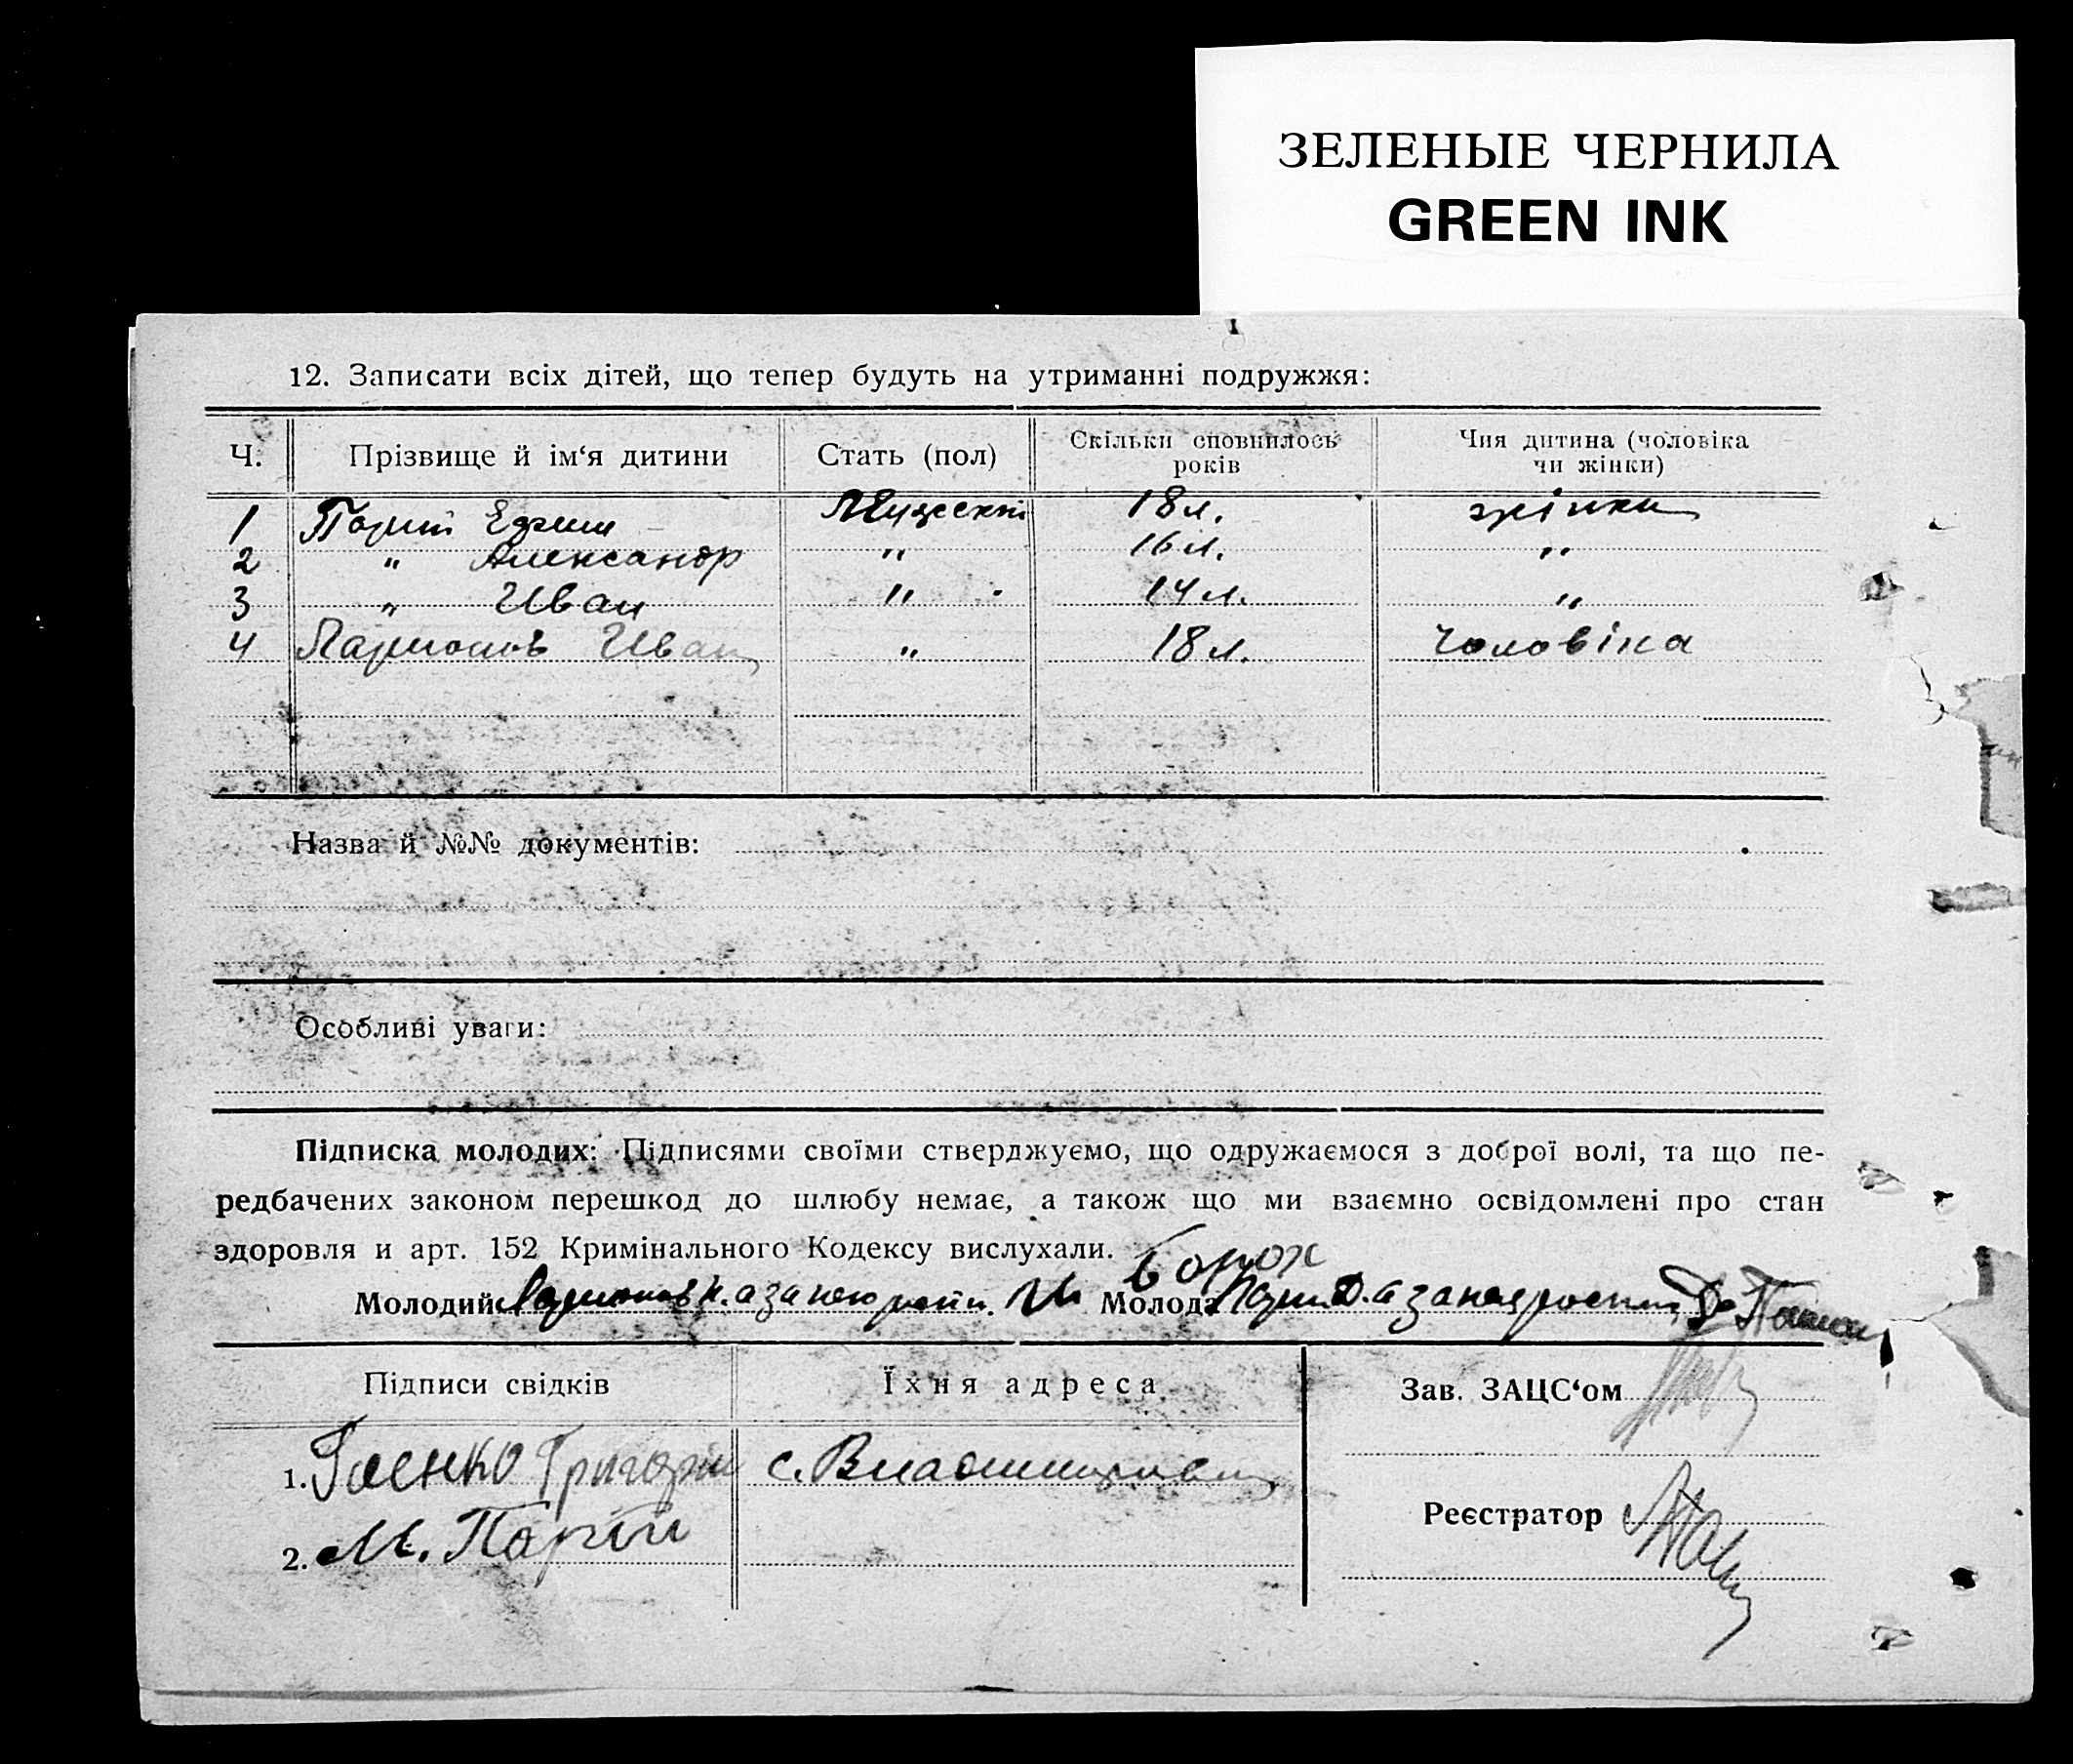 ЗЕЛЕНЫЕ ЧЕРНИЛА
GREEN INK
12. Записати всіх дітей, що тепер будуть на утриманні подружжя:
Ч. Прізвище й ім‘я дитини Стать (пол) Скільки сповнилось років Чия дитина (чоловіка чи жінки)
1 18 л. жінки
2 " Александр " 16 л. "
3 " Иван " 14 л. "
4 Ларионов Иван " 18 л. чоловіка
Назва й №№ документів:
Особливі уваги:
Підписка молодих: Підписями своїми стверджуємо, що одружаємося з доброї волі, та що пе-
редбачених законом перешкод до шлюбу немає, а також що ми взаємно освідомлені про стан
здоровля и арт. 152 Кримінального Кодексу вислухали.
Молодий Ларионов а за него Молода а за
Підписи свідків Їхня адреса Зав. ЗАЦС‘ом
1. Григорій с.
2. М. Порти Реєстратор